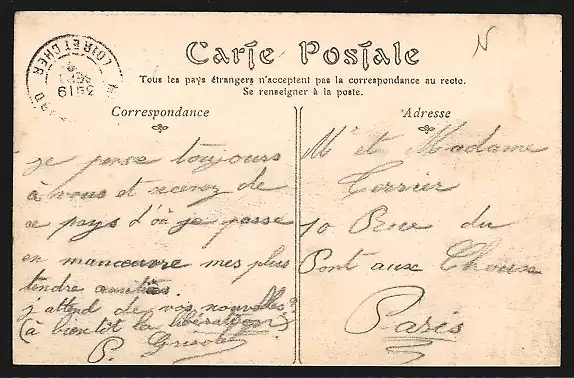 Carte Postale
Tous les pays étrangers n'acceptent pas la correspondance au recto.
Se renseigner à la poste.
LOIR ET CHER
Correspondance
je pense toujours
à vous et recevez de
ce pays d'où je passe
en manœuvre mes plus
tendre amitiés.
j'attend de vos nouvelles
(à bientôt la libération)
P.
Adresse
Mr et Madame
10 Rue du
Pont aux Choux
Paris
N